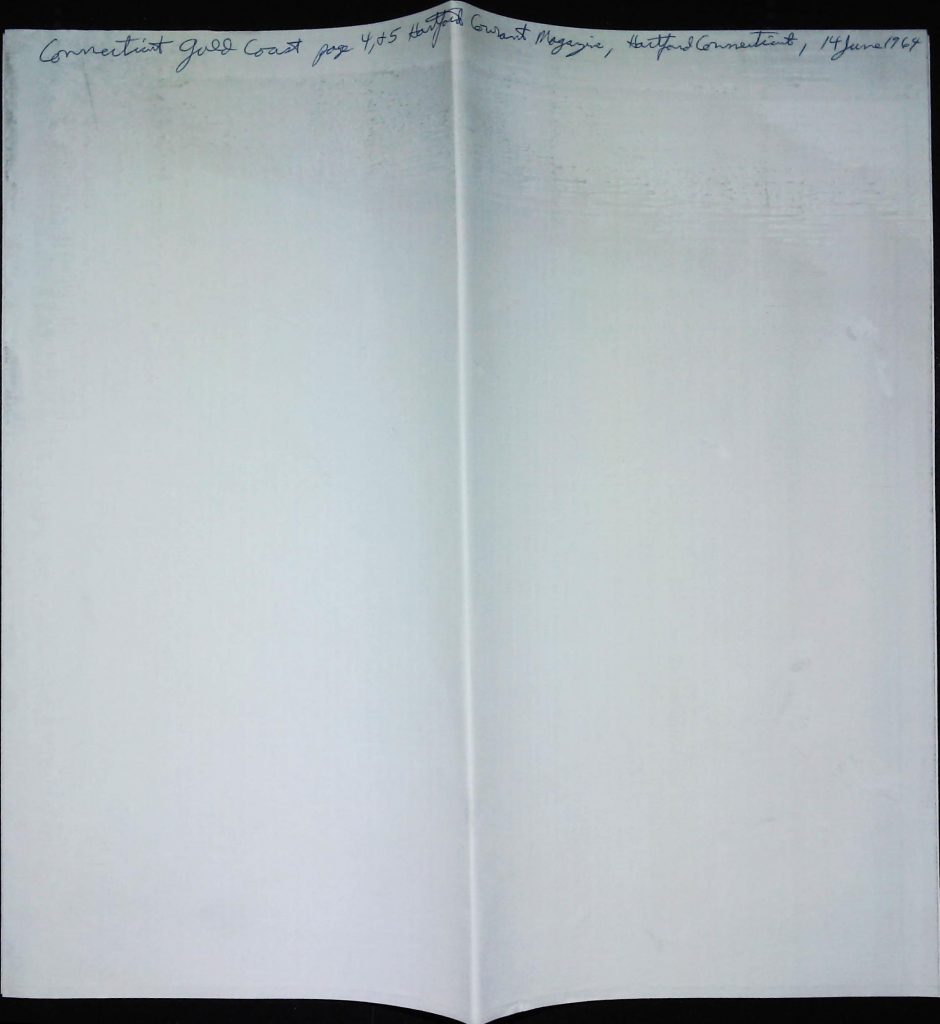 Connecticut Gold Coast page 4,&5 Hartford Courant Magazine, Hartford Connecticut, 14 June 1964